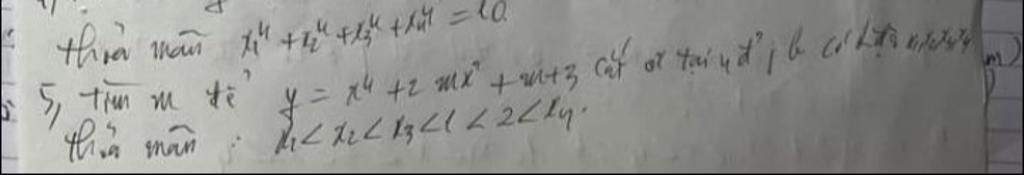 thoả mãn x₁⁴ + x₂⁴ + x₃⁴ + x₄⁴ = 10.
5, tìm m để y = x⁴ + 2mx² + m+3 cắt ox tại 4 đ², có x₁x₂x₃x₄
thoả mãn : x₁ < x₂ < x₃ < 1 < 2 < x₄.